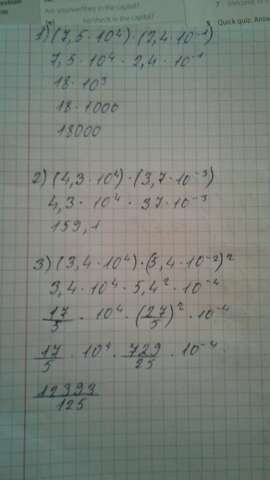 Are you/were/they in the capital?
he/she/it in the capital?
5 Quick quiz. Answ
1) (7,5 · 10⁴) · (2,4 · 10⁻¹)
7,5 · 10⁴ · 2,4 · 10⁻¹
18 · 10³
18 · 1000
18000
2) (4,3 · 10⁴) · (3,7 · 10⁻³)
4,3 · 10⁴ · 3,7 · 10⁻³
159,1
3) (3,4 · 10⁴) · (5,4 · 10⁻²)²
3,4 · 10⁴ · 5,4² · 10⁻⁴
17/5 · 10⁴ · (27/5)² · 10⁻⁴
17/5 · 10⁴ · 729/25 · 10⁻⁴
12393/125